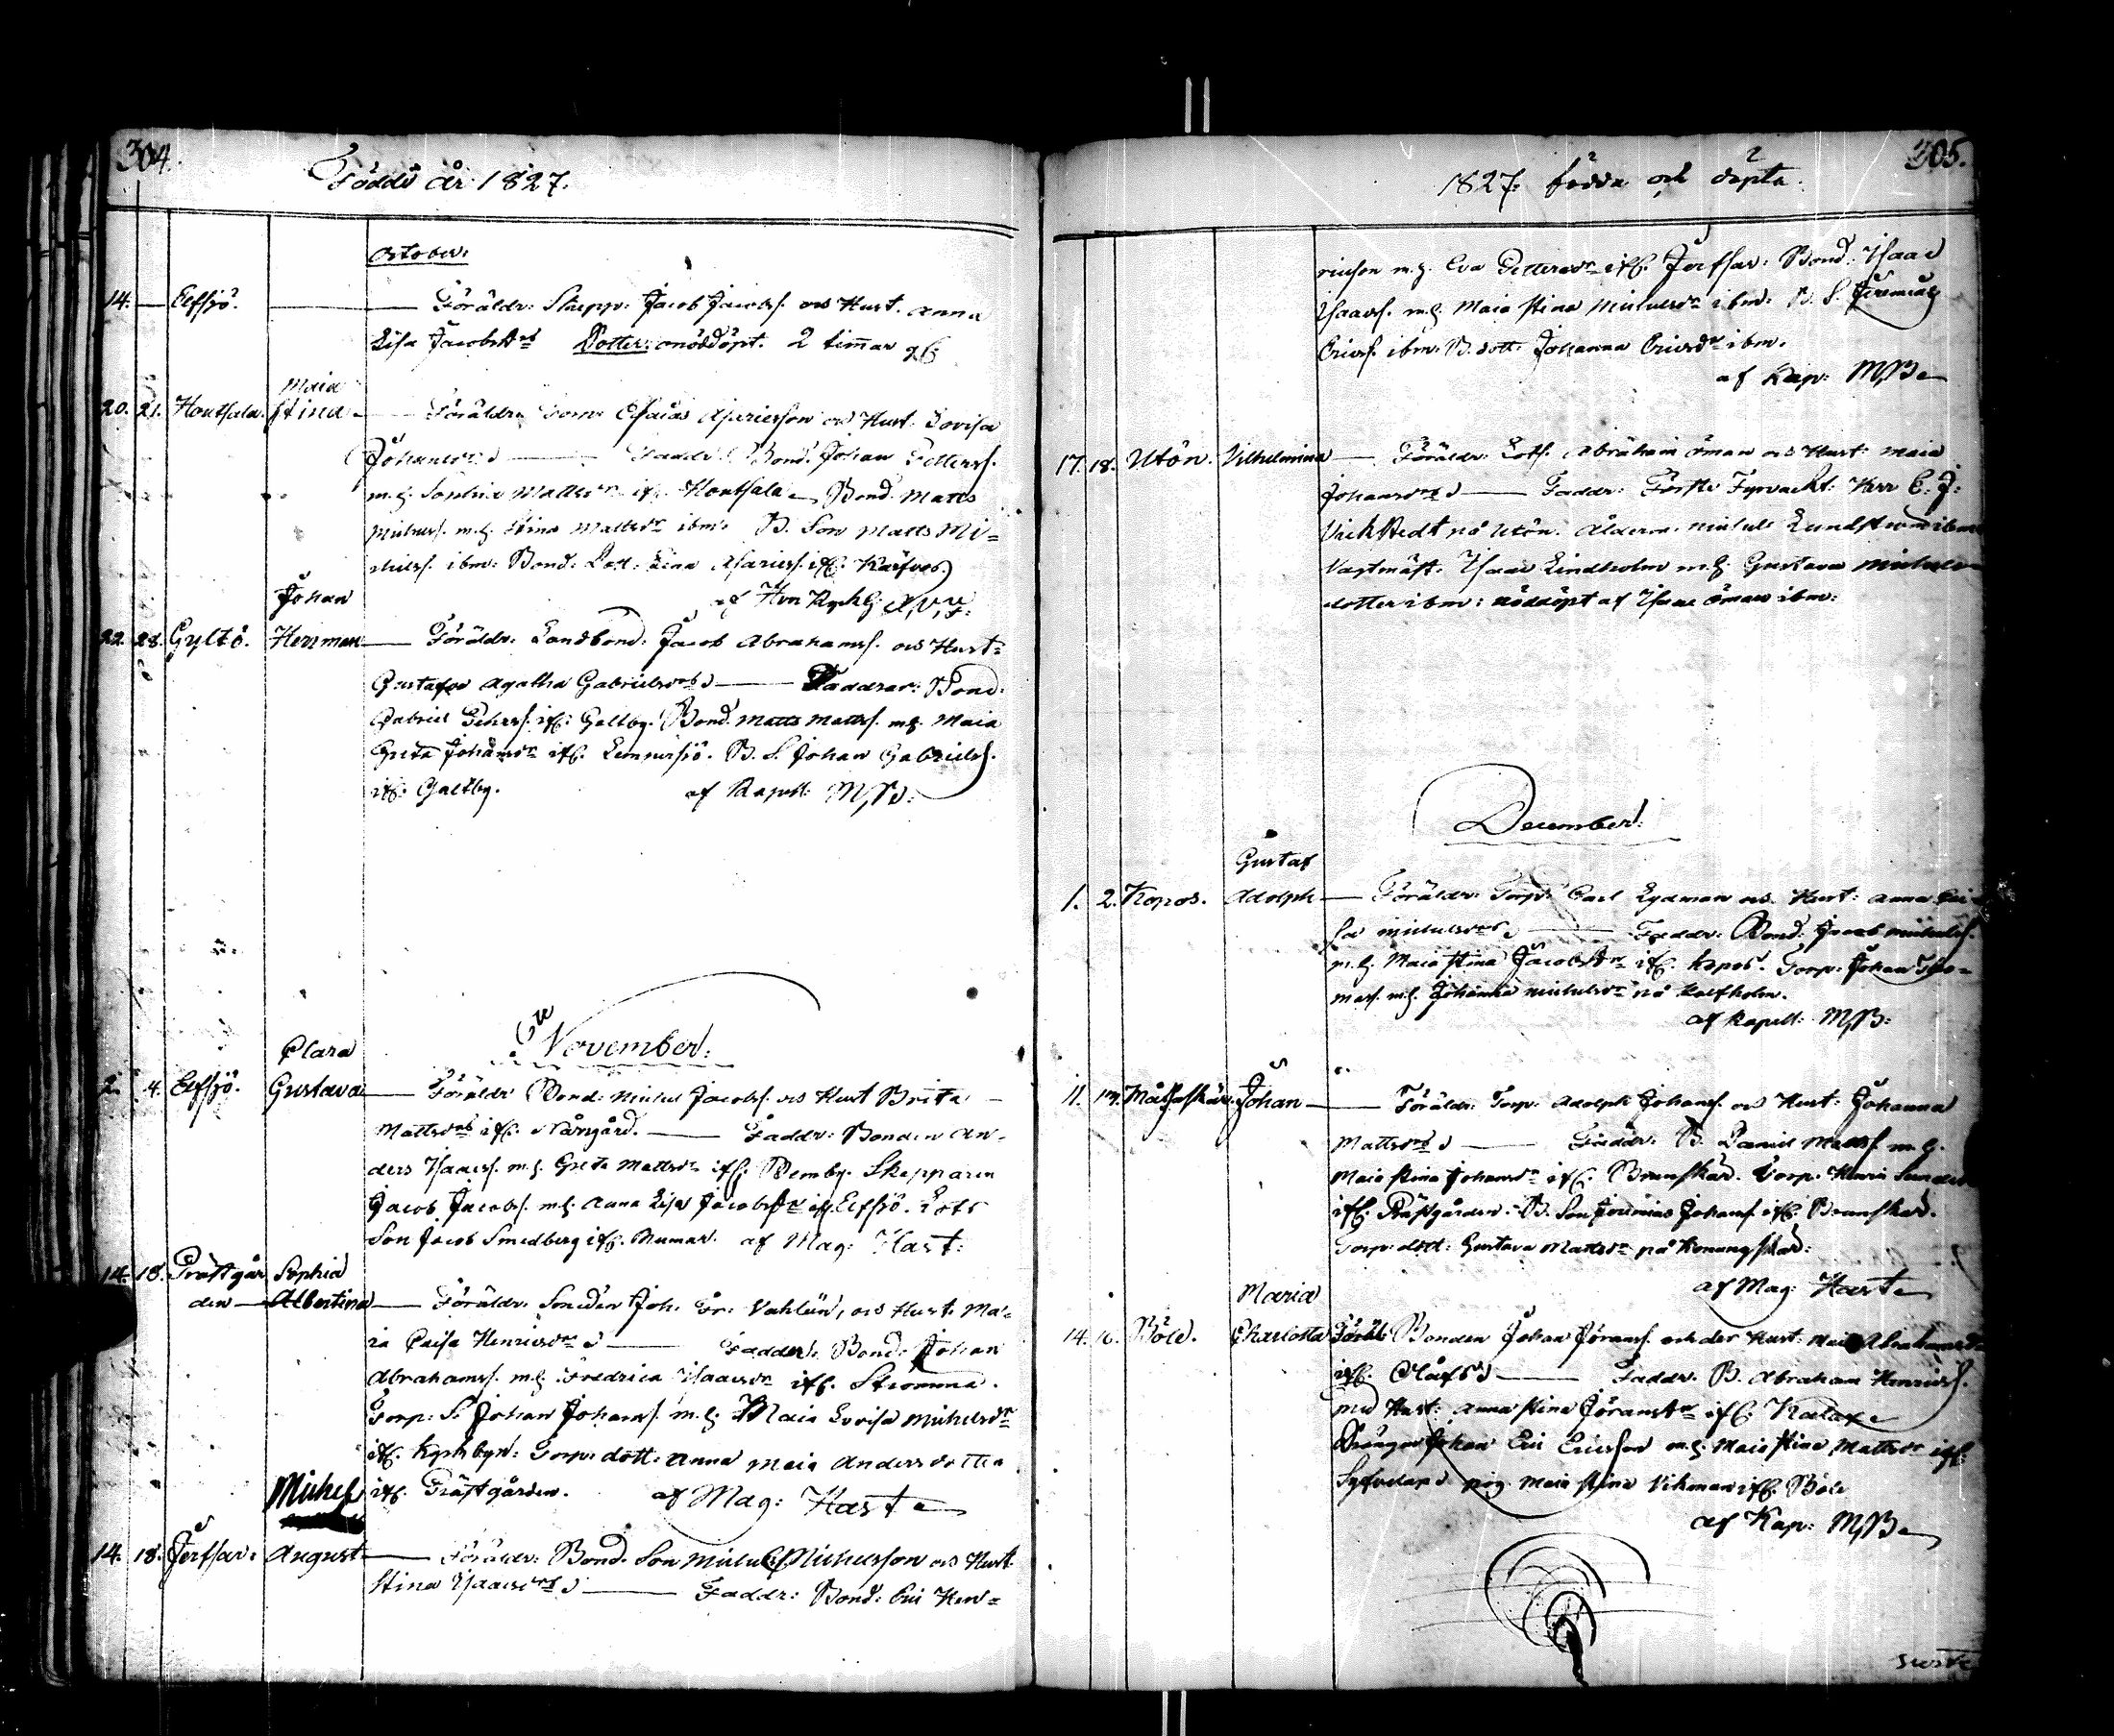 304.
Föddo år 1827.
October:
14. — Elfsjö. — Föräldr: Skepp: Jacob Jacobs. os Hust. Anna
Lisa Jacobsdr Dotter: onöddöpt. 2 timar gl.
Maia
20. 21. Houtsala. Stina — Föräldr: Torp: Esaias Asariesson os Hust. Lovisa
Johansdr: Faddr: Bond. Johan Petterss.
m.h. Sophia Mattsdr if. Houtsala Bond Matts
Michelss. m.h. Stina Mattsdr ibm: B. Son Matts Mi=
chelss. ibm: Bond. Dott: Lena Asariess. if.
af Hrr Kyrkh:
Johan
22. 28. Gyltö. Herrman — Föräldr: Landbond: Jacob Abrahamss. os Hust=
Gustafva Agatha Gabrielsdr — Faddrar: Bond:
Gabriel if: Galtby. Bond. Matts Matss. m.h. Maia
Greta Johansdr if. Lemnersjö. B. S. Johan Gabrielss.
if. Galtby. af Kapell: M,B:
November:
Clara
2. 4. Elfsjö. Gustava — Föräldr Bond: Michel Jacobss. os Hust Brita
Mattsdr if. Norrgård. — Faddr: Bonden An=
ders Isacss. m.h. Greta Mattsdr if. Bemby. Skepparen
Jacob Jacobss. m.h. Anna Lisa Jacobsdr if Elfsjö. Lots
Son Jacob Smedberg if. Rumar. af Mag: Hast:
14. 18. Prästgår Sophia
den — Albertina — Föräldr. Smeden Joh. Fr: Vahlün, os Hust. Ma=
ia Caisa Henricsdr — Faddr: Bond: Johan
Abrahamss. m.h. Fredrica Isaacsdr if. Strömma.
Torp: S. Johan Johanss. m.h. Maia Lovisa Michelsdr
if. Kyrkbyn: Torp: dott: Anna Maia Andersdotter
Michel if. Prästgården. af Mag: Hast
14. 18. Jerfsar: August — Föräldr: Bond. Son Michel Michelsson os Hust
Stina Isaacsdr — Faddr: Bond: Eric Hen=
305.
1827: födda och döpta.
ricson m.h. Eva Pettersdr if. Jerfsar: Bond: Isaac
Isaacss. m.h. Maia Stina Michelsdr ibm: B. S. Jeremias
Ericss. ibm. B. dott. Johanna Ericsdr ibm.
af Kap: M,B
17. 18. Utön. Vilhelmina — Föräldr: Lots. Abraham Öman os Hust: Maia
Johansdr — Faddr: Förste Fyrvackt: Herr C: J:
Vickstedt på Utön. Ålderm: Michel Lundström ibm
Vagtmäst. Isaac Lindholm m.h. Gustava Michels=
dotter ibm: nöddöpt af Isaac Öman ibm:
December:
Gustaf
1. 2. Kopos. Adolph — Föräldr: Torp: Carl Lydman os. Hust: Anna Cai=
sa Michelsdr — Faddr: Bond: Jacob Michelss.
m.h. Maia Stina Jacobsdr if. Kopos. Torp: Johan Tho=
mass. m.h. Johanna Michelsdr på Kalfholm.
af Kapell: M,B:
11. Johan — Föräldr: Torp: Adolph Johanss. os Hust: Johanna
Mattsdr — Faddr: B. Daniel Mattss. m.h.
Maia Stina Johansdr if. Brunskär. Torp: Henric
if. Prästgården. B. Son Jeremias Johanss. if. Brunskär.
Torp: dott: Gustava Mattsdr på Konungskär:
af Mag: Hast
Maria
14. 16. Böle. Charlotta Föräld: Bonden Johan Jöranss. och des Hust: Maia Abrahamsdr
if. Olofs — Faddr. B. Abraham Henricss.
med Hust: Anna Stina Jöransdr if. Kalax
Drängen Johan Eric Ericsson m.h. Maia Stina Mattsdr if.
pig. Maia Stina Vikman if. Böle
af Kap: M,B